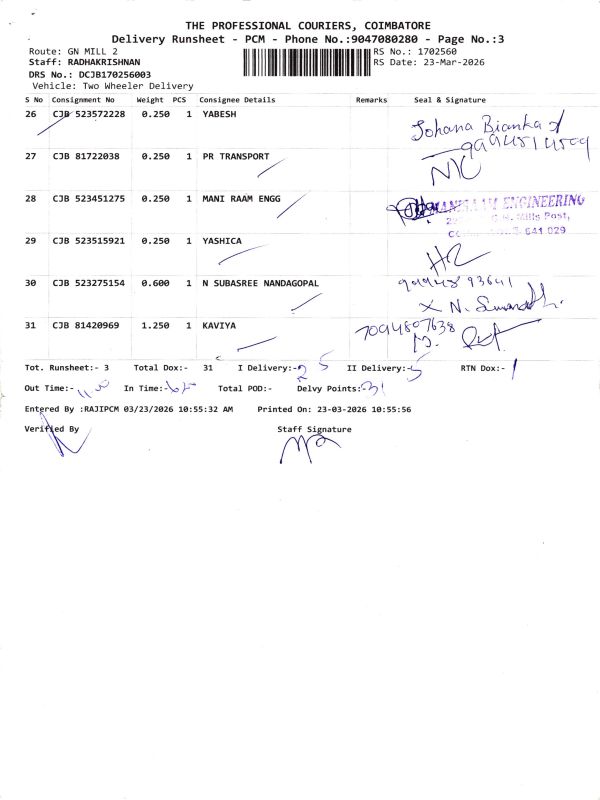 THE PROFESSIONAL COURIERS, COIMBATORE
Delivery Runsheet - PCM - Phone No.:9047080280 - Page No.:3
Route: GN MILL 2
RS No.: 1702560
Staff: RADHAKRISHNAN
RS Date: 23-Mar-2026
DRS No.: DCJB170256003
Vehicle: Two Wheeler Delivery
S No Consignment No Weight PCS Consignee Details Remarks Seal & Signature
26 CJB 523572228 0.250 1 YABESH
Johana Bianka
27 CJB 81722038 0.250 1 PR TRANSPORT
28 CJB 523451275 0.250 1 MANI RAAM ENGG
ENGINEERING
G.N. Mills Post,
641 029
29 CJB 523515921 0.250 1 YASHICA
30 CJB 523275154 0.600 1 N SUBASREE NANDAGOPAL
31 CJB 81420969 1.250 1 KAVIYA
7094807638
Tot. Runsheet:- 3 Total Dox:- 31 I Delivery:- 25 II Delivery:-5 RTN Dox:- 1
Out Time:- In Time:- Total POD:- Delvy Points:-31
Entered By :RAJIPCM 03/23/2026 10:55:32 AM Printed On: 23-03-2026 10:55:56
Verified By Staff Signature